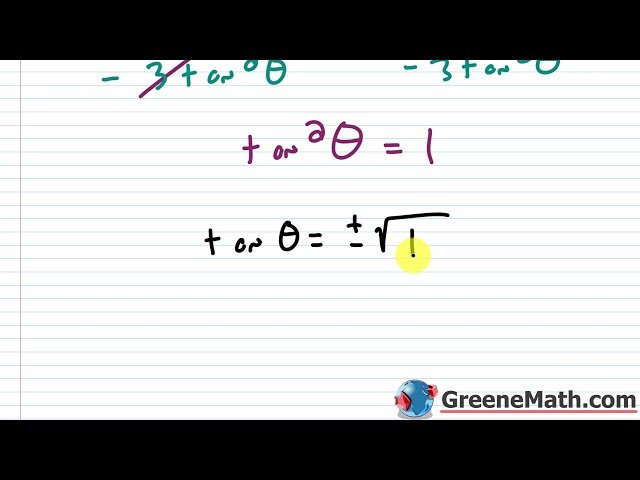 - 3 tan²θ - 3 tan²θ
tan²θ = 1
tan θ = ± √1
GreeneMath.com